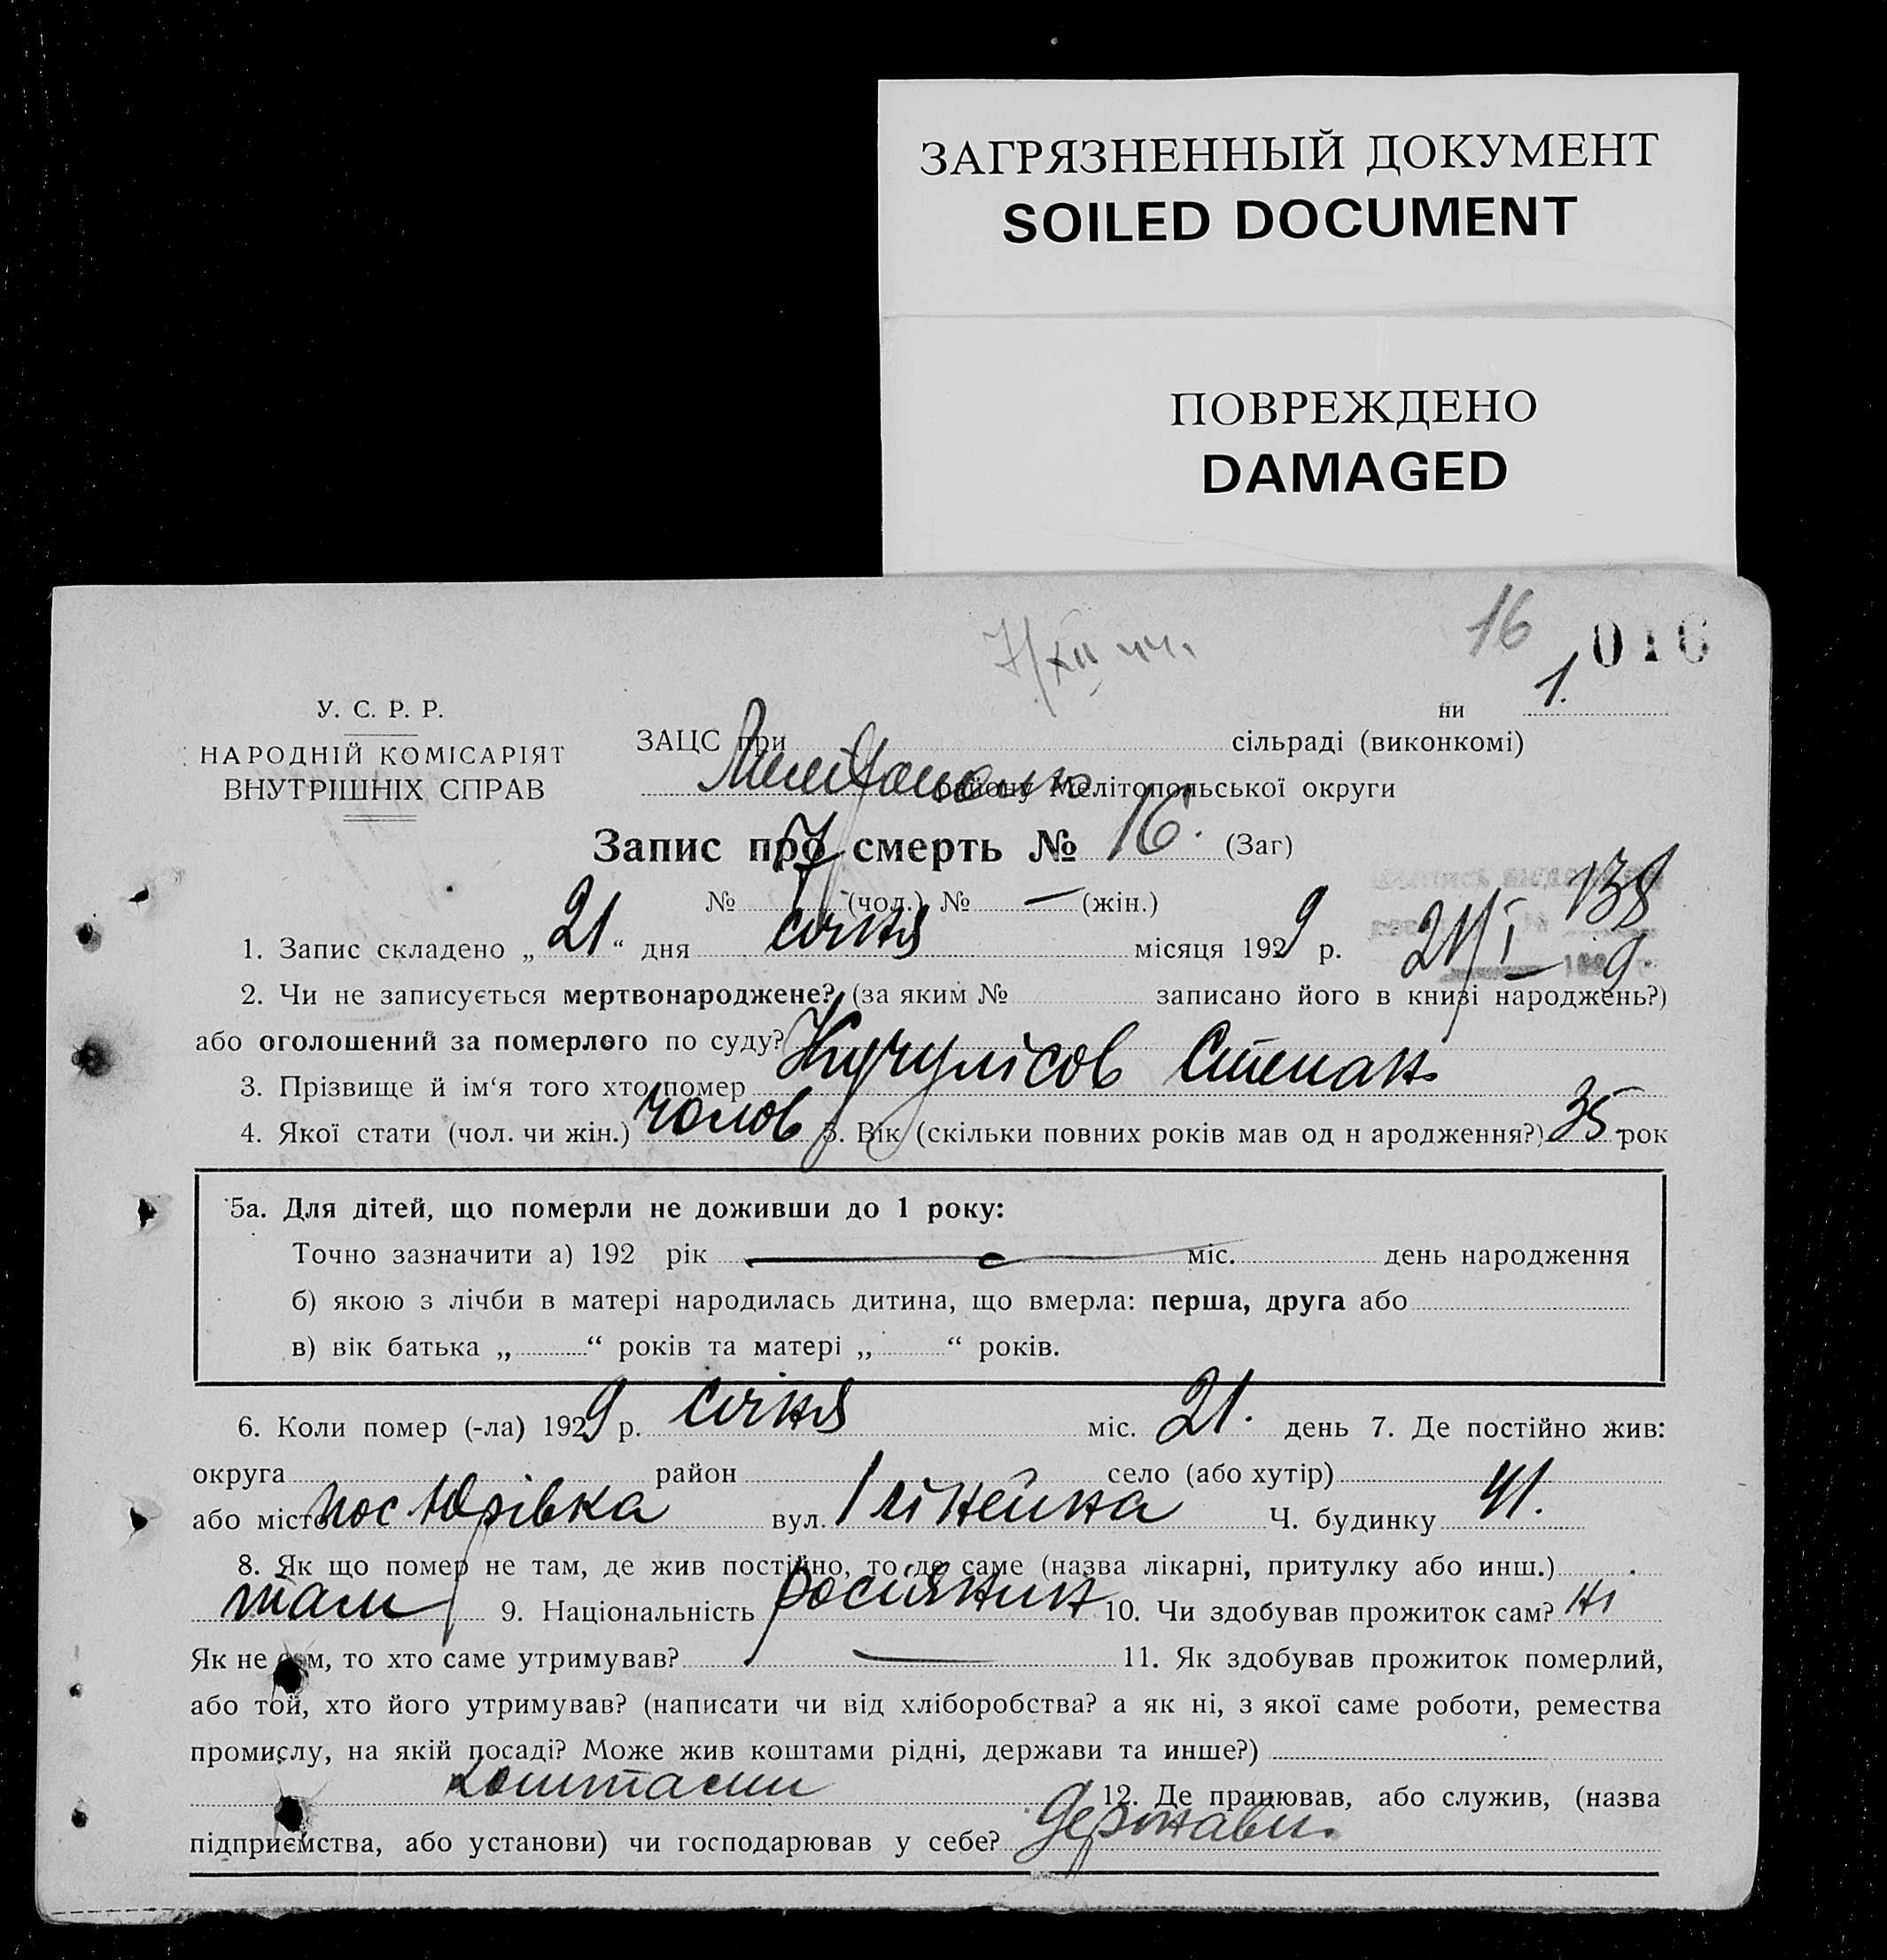 ЗАГРЯЗНЕННЫЙ ДОКУМЕНТ
SOILED DOCUMENT
ПОВРЕЖДЕНО
DAMAGED
16 016
7/XII 44.
ни 1.
У. С. Р. Р.
НАРОДНІЙ КОМІСАРІЯТ
ВНУТРІШНІХ СПРАВ
ЗАЦС при сільраді (виконкомі)
району Мелітопольської округи
Запис про смерть № 16. (Заг)
№ 7 (чол.) № — (жін.)
138
1. Запис складено „ 21 “ дня січня місяця 1929 р. 21/I 9
2. Чи не записується мертвонароджене? (за яким № записано його в книзі народжень?)
або оголошений за померлого по суду?
3. Прізвище й ім‘я того хто помер Кучулісов Степан
4. Якої стати (чол. чи жін.) чолов 5. Вік (скільки повних років мав од н ародження?) 35 рок
5а. Для дітей, що померли не доживши до 1 року:
Точно зазначити а) 192 рік — міс. день народження
б) якою з лічби в матері народилась дитина, що вмерла: перша, друга або
в) вік батька „ “ років та матері „ “ років.
6. Коли помер (-ла) 1929 р. січня міс. 21. день 7. Де постійно жив:
округа район село (або хутір)
або місто пос Юрівка вул. 1 лінейна Ч. будинку 41.
8. Як що помер не там, де жив постійно, то де саме (назва лікарні, притулку або инш.)
там 9. Національність росіянин 10. Чи здобував прожиток сам? ні
Як не сам, то хто саме утримував? — 11. Як здобував прожиток померлий,
або той, хто його утримував? (написати чи від хліборобства? а як ні, з якої саме роботи, ремества
промислу, на якій посаді? Може жив коштами рідні, держави та инше?)
коштами 12. Де працював, або служив, (назва
підприємства, або установи) чи господарював у себе? держави.